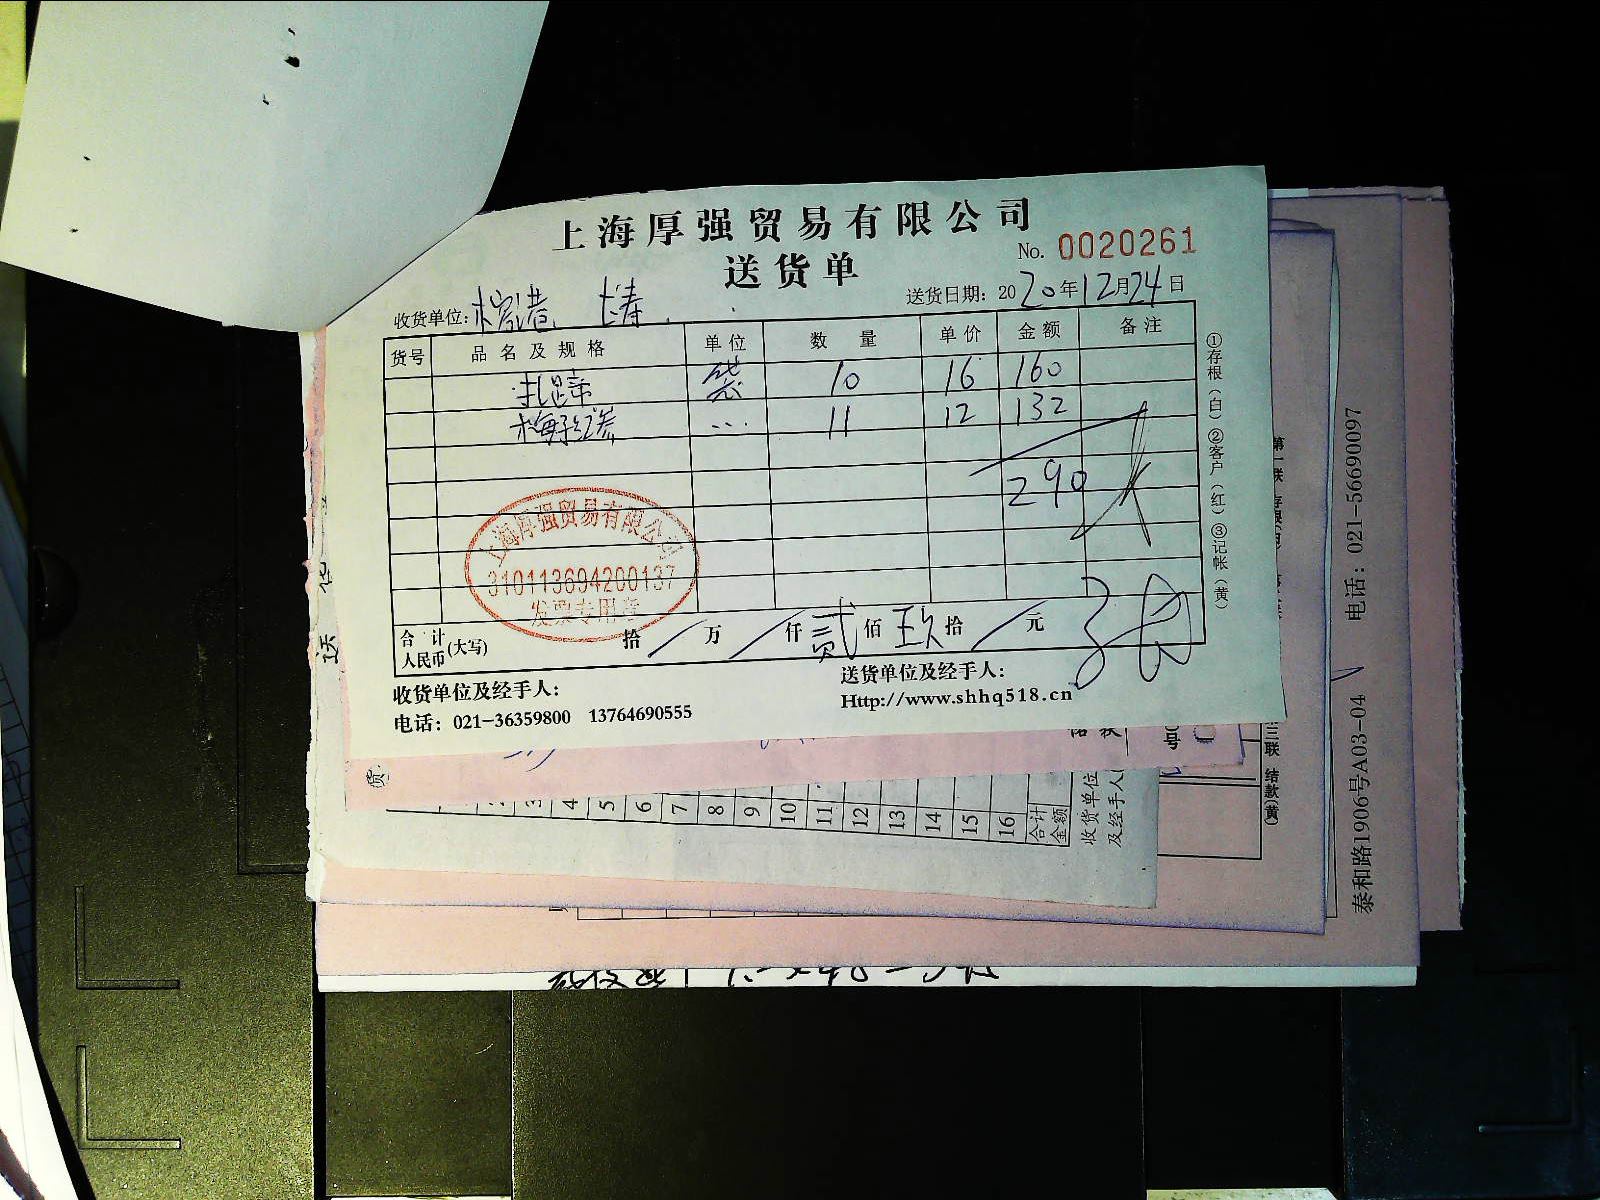 上海厚强贸易有限公司
送货单
No. 0020261
收货单位: 长寿
送货日期: 2020年12月24日
货号 品名及规格 单位 数量 单价 金额 备注
扎蹄 袋 10 16 160
梅子红差 … 11 12 132
290
上海厚强贸易有限公司
310113694200137
发票专用章
合计人民币(大写) 拾 万 仟 贰 佰 玖 拾 元
收货单位及经手人:
送货单位及经手人:
电话: 021-36359800 13764690555
Http://www.shhq518.cn
①存根(白)②客户(红)③记帐(黄)
货
3 4 5 6 7 8 9 10 11 12 13 14 15 16 合计金额
收货单位及经手人
号
第一联
三联 结款(黄)
泰和路1906号A03-04 电话: 021-56690097
送